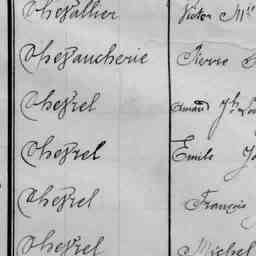 Chevallier Victor M
Chevaucherie Pierre
Chevrel Amand Jh
Chevrel Emile
Chevrel François
Chevrel Michel